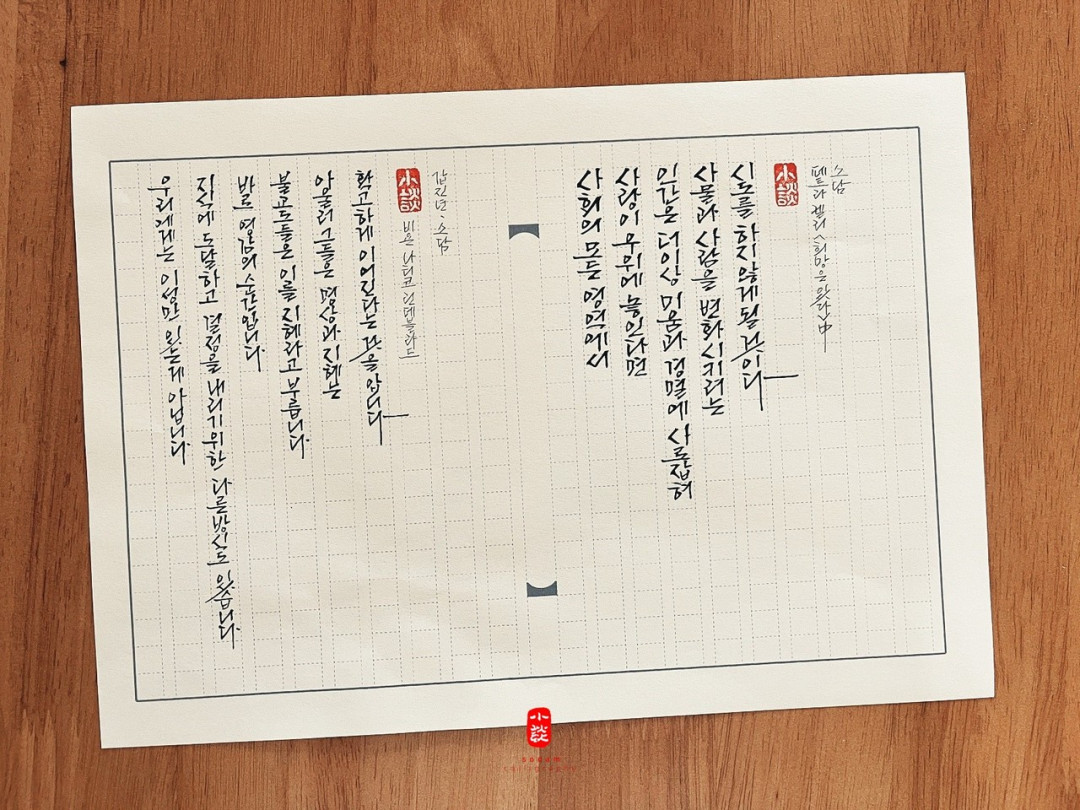 우리에게는 이성만 있는게 아닙니다
지식에 도달하고 결정을 내리기위한 다른방식도 있습니다.
바로 영감의 순간입니다.
불교도들은 이를 지혜라고 부릅니다.
아울러 그들은 명상과 지혜는
확고하게 이어진다는 것을 압니다.
小談
비욘 나티코 린데블라드
갑진년. 소담
사회의 모든 영역에서
사랑이 우위에 놓인다면
인간은 더이상 미움과 경멸에 사로잡혀
사물과 사람을 변화시키려는
시도를 하지않게될 것이다
小談
페트라 켈리 <희망은 있다> 中
소담
小談